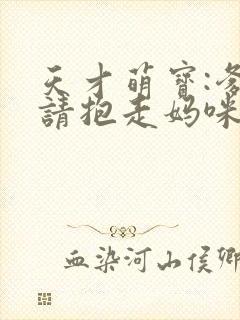 天才萌寶:爹
請抱走媽咪
血染河山侯卿